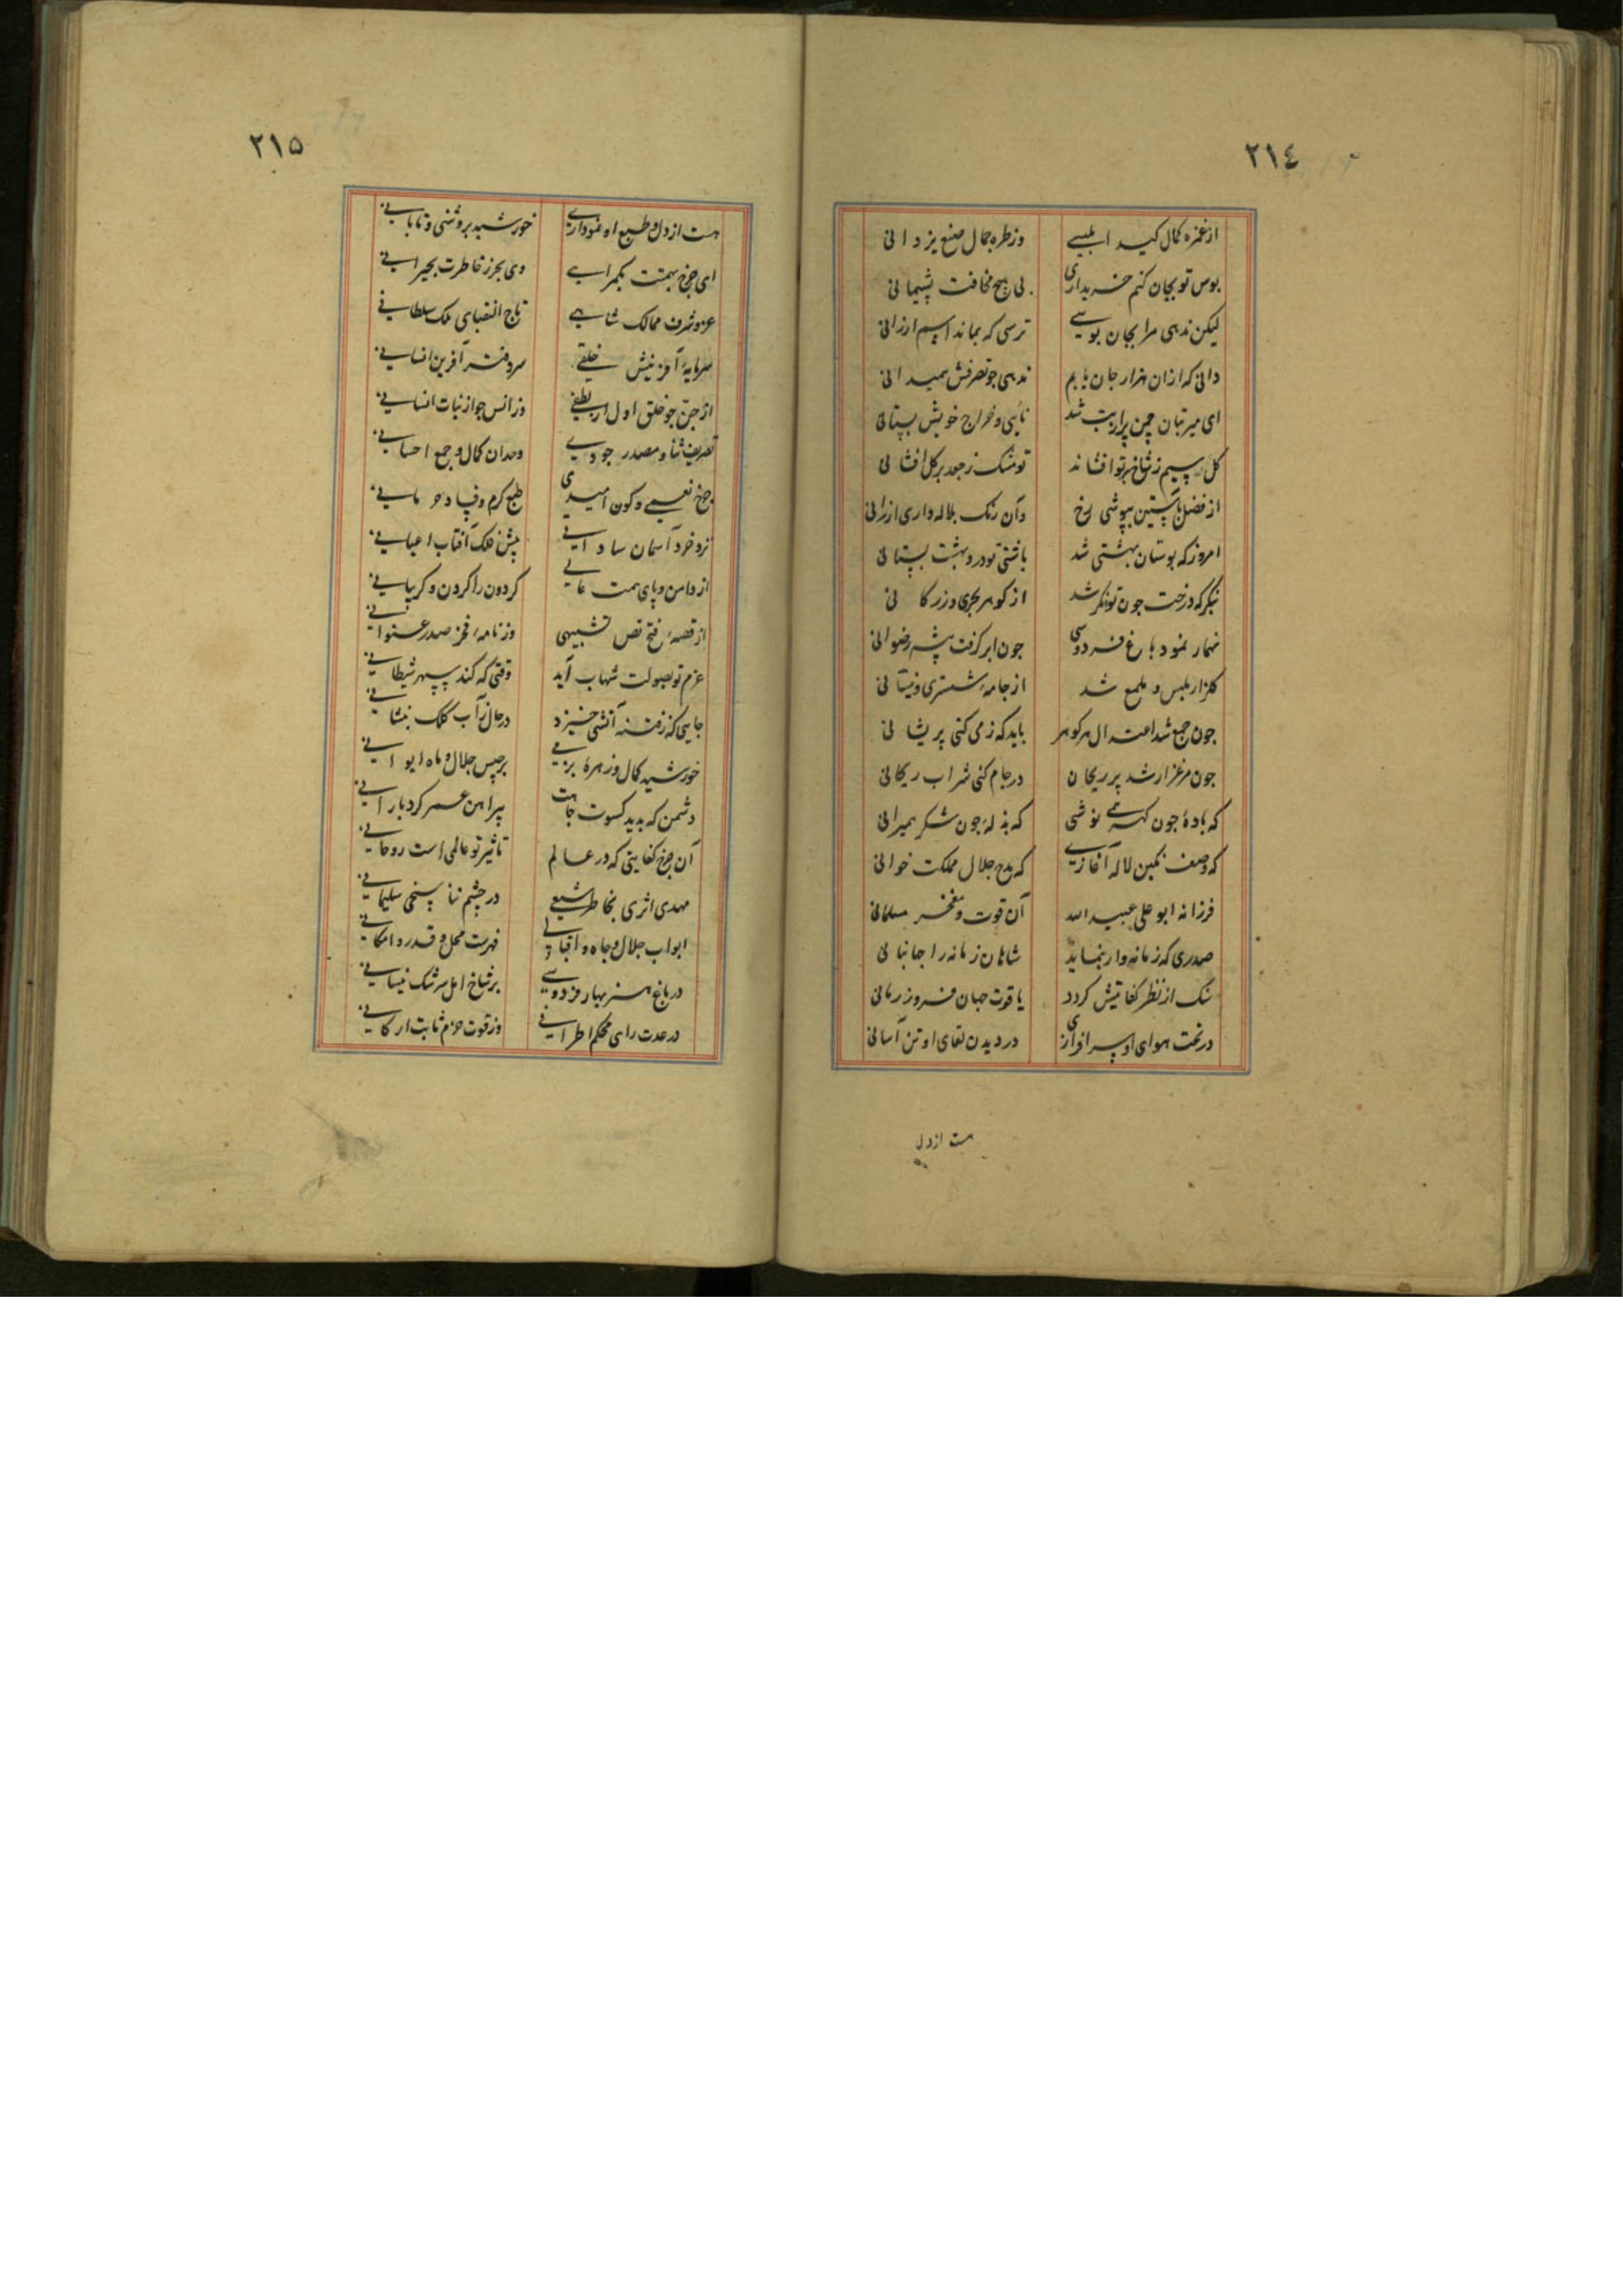 ٢١٤
از غمزه کمال کید ابلیسے وز طره جمال صنع یزدانی
بوس تو بجان کنم خریداری بی هیچ مخافت پشیمانی
لیکن ندهی مرا بجان بوسے ترسی که بماند اسیم ارزانی
دانی که ازان هزار جان یابم ندهی جو تصرفش همیدانی
ای میر بتان چمن پرار بت شد نایی و خراج خویش بستانی
کل سیم ز شاخ بر تو افشاند تو مشک ز جعد بر کل افشانی
از فضل باستین بپوشی رخ وآن رنک بلاله داری ارزانی
امروز که بوستان بهشتی شد باشی تو درو بهشت بستانی
بنکر که درخت جون توانکر شد از کوهر بحری و زر کانی
خمار نمود باغ فردوسی جون ابر کرفت پیشه رضوانی
کلزار ملبس و ملمع شد از جامه ششتری و نیسانی
جون جمع شد اعتدال هر کوهر باید که ز می کنی پریشانی
جون مرغزار شد پر ریحان در جام کنی شراب ریحانی
که باده جون کهرهے نوشی که بذله جون شکر همیرانی
که وصف نکین لاله آغازیے که مدح جلال مملکت خوانی
فرزانه ابو علی عبید الله آن قوت و مفخر مسلمانی
صدری که زمانه وار بنماید شاهان زمانه را جهانبانی
سنک از نظر کفایتش کردد یاقوت جهان فروز رمانی
در تحت هوای او سرافرازی در دیدن لقای او تن آسانی
هست از دل
٢١٥
هست از دل و طبع او نموداریے خورشید بروشنی و تابانیے
ای جرخ بهمت بکمراهے وی بحر ز خاطرت بحیرانیے
عز و شرف ممالک شاهے تاج النقبای ملک سلطانیے
سرمایه آفرینش خلقے سر دفتر آفرین انسانیے
از جن جو خلق اول از لطفے وز انس جو از نبات انسانیے
تعریف ثنا و مصدر جودیے وحدان کمال و جمع احسانیے
جرخ نعیمے و کون امیدی طبع کرم و فساد حرمانیے
نزد خرد آسمان ساداتیے پیش فلک آفتاب اعیانیے
از دامن و پای همت عالیے کردون را کردن و کریبانیے
از قصه فتح نص تشبیهی وز نامه فخر صدر عنوانیے
عزم تو بصولت شهاب آید وقتی که کند سپهر شیطانیے
جایی که ز فتنه آتشی خیزد در حال ز آب کلک بنشانیے
خورشید کمال و زهره بزمیے برجیس جلال و ماه ایوانیے
دشمن که بدید کسوت جاهت پیراهن عمر کرد بارانیے
آن جرخ کفایتی که در عالم تاثیر تو عالمی است روحانیے
مهدی اثری بخاطر شیعے در چشم تناسخی سلیمانیے
ابواب جلال و جاه و اقبالیے فهرست محل و قدر و امکانیے
در باغ هنر بهار فردوسیے بر شاخ امل سرشک نیسانیے
در عدت رای محکم اطرافیے وز قوت حزم ثابت ارکانیے